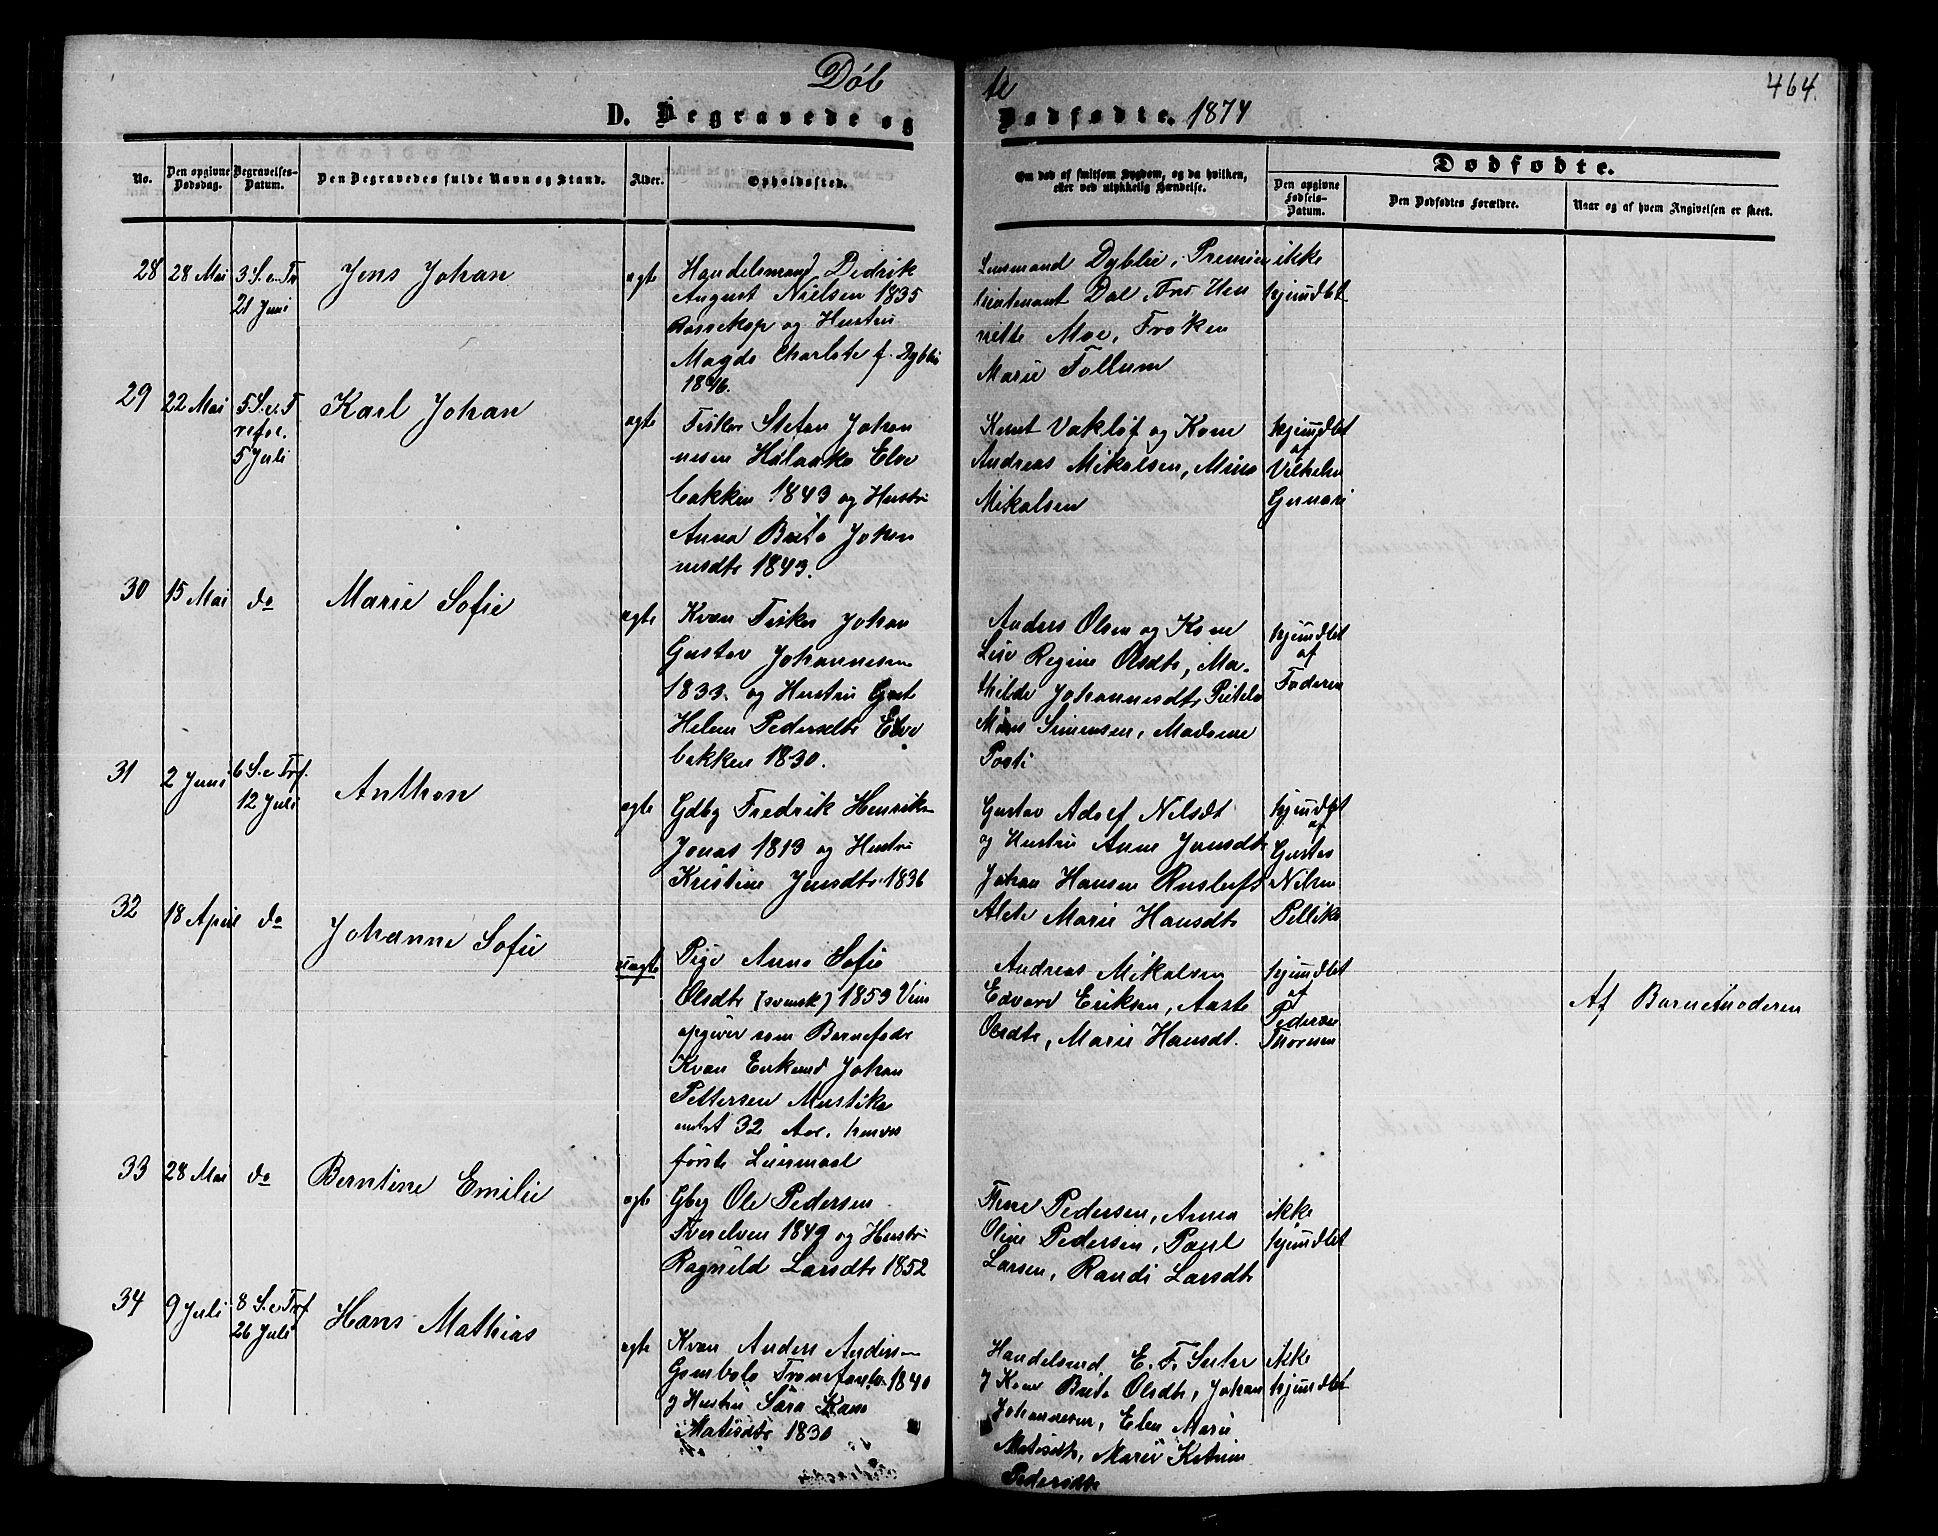 Døbte
464.
D. Begravede og Dødfødte. 1874
No.
Den opgivne Dødsdag.
Begravelses-Datum.
Den Begravedes fulde Navn og Stand.
Alder.
Opholdssted.
Om død af smitsom Sygdom, og da hvilken,
eller ved ulykkelig Hændelse.
Dødfødte.
Den opgivne Fødsels-Datum.
Den Dødfødtes Forældre.
Naar og af hvem Angivelsen er skeet.
28 28 Mai 3 S. e. Tr
21 Juni
Jens Johan
ægte
Handelsmand Dedrik
August Nielsen 1835
Bossekop og Hustru
Magda Charlote f. Dyblie
1846.
Lensmand Dyblie, Premier
lieutenant Dal, Frø Hen
riette Moe, Frøken
Marie Follum
ikke
hjemdøbt
29 22 Mai 5 S. e. T
refor.
5 Juli
Karl Johan
ægte
Fisker Stefan Johan
nesen Halaako Elve
bakken 1843 og Hustru
Anna Brita Johan
nesdtr 1843.
Knut Vakløf og Kone
Andreas Mikalsen, Mina
Mikalsen
hjemdøbt
af
Vilhelm
30 15 Mai do
Marie Sofie
ægte
Kvæn Fisker Johan
Gustav Johannesen
1833 og Hustru Greta
Helena Pedersdtr Elve
bakken 1830.
Anders Olsen og Kone
Lise Regine Olsdtr, Ma-
thilde Johannesdtr Pietila
Simonsen, Madame
Posti
hjemdøbt
af
Faderen
31 2 Juni 6 S. e. Trf.
12 Juli
Anthon
ægte
Gdbg Fredrik Henriksen
Jonas 1813 og Hustru
Kristine Jensdtr 1836
Gustav Adolf Nilsdt
og Hustru Anne Jensdtr
Johan Hansen
Alet Marie Hansdtr
hjemdøbt
af
Gustav
Nilsen
Pellika
32 18 April do
Johanne Sofie
uægte
Pige Anna Sofie
Olsdtr (svensk) 1853
opgiver som Barnefader
Kvæn Enkemd Johan
Pettersen Mustika
omtrt 32 Aar, hendes
første Leiermaal
Andreas Mikalsen
Edvard Eriksen, Aaste
Olsdtr, Marie Hansdt.
hjemdøbt
af
Pedersen
Thoresen
Af Barnemoderen
33 28 Mai do
Berntine Emilie
ægte
Gbg Ole Pedersen
Tverelven 1849 og Hustru
Ragnild Larsdtr 1852
Pedersen, Anna
Oline Pedersen, Paul
Larsen, Randi Larsdtr
ikke
hjemdøbt
34 9 Juli 8 S. e. Trf
26 Juli
Hans Mathias
ægte
Kvæn Anders Andersen
1840
og Hustru Sara
Matisdtr 1830
Handelsmd E. F.
og Kone Brita Olsdtr, Johan
Johannesen, Elen Marie
Matisdtr, Marie Katrine
Pedersdtr
ikke
hjemdøbt